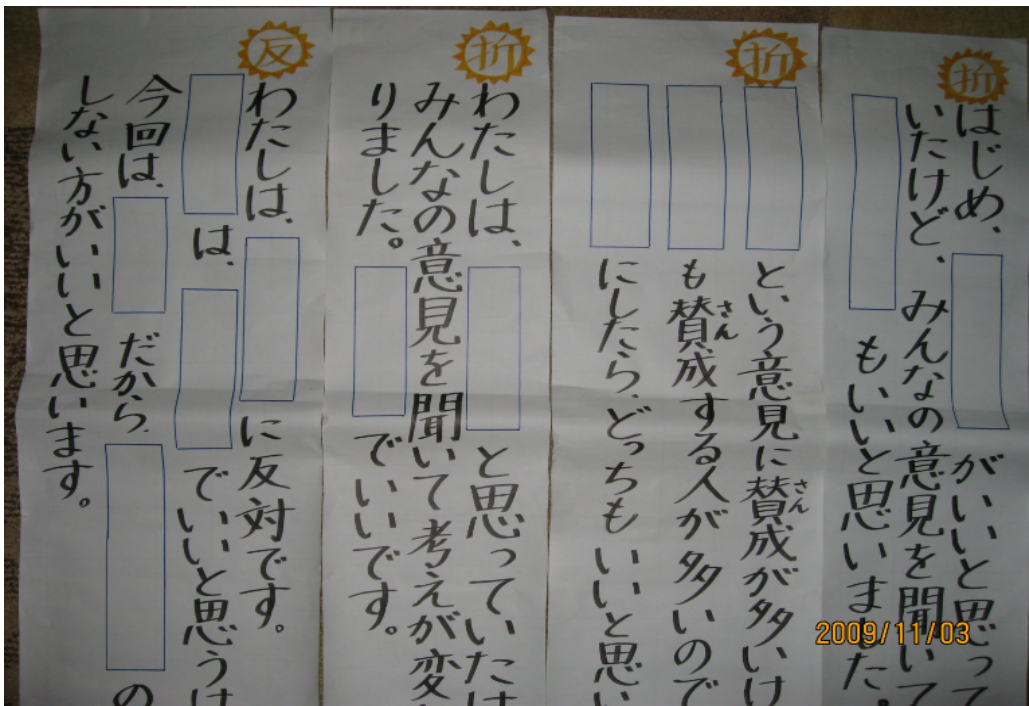 折
はじめ、 がいいと思って
いたけど、みんなの意見を聞いて
もいいと思いました。
折
という意見に賛成が多いけ
さん
も賛成する人が多いので
さん
にしたら、どっちもいいと思い
折
わたしは、 と思っていたけ
みんなの意見を聞いて考えが変
りました。 でいいです。
反
わたしは、 に反対です。
は、 でいいと思うけ
今回は、 だから、 の
しない方がいいと思います。
2009/11/03